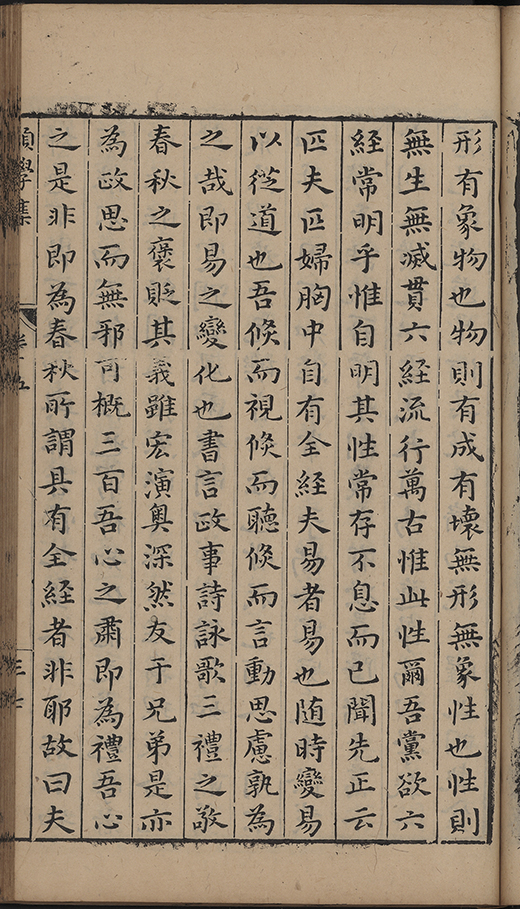 形有象物也物則有成有壞無形無象性也性則
無生無滅貫六經流行萬古惟此性爾吾黨欲六
經常明乎惟自明其性常存不息而已聞先正云
匹夫匹婦胸中自有全經夫易者易也随時變易
以從道也吾倐而視倐而聽倐而言動思慮孰為
之哉即易之變化也書言政事詩詠歌三禮之敬
春秋之褒貶其義雖宏演奥深然友于兄弟是亦
為政思而無邪可概三百吾心之肅即為禮吾心
之是非即為春秋所謂具有全経者非耶故曰夫
學集
五